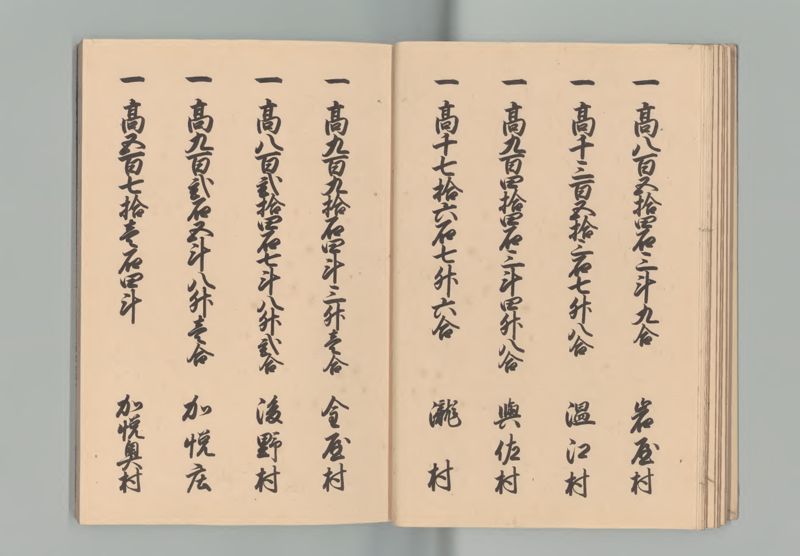 一 高八百五拾四石三斗九合 岩屋村
一 高千三百五拾三石七升八合 温江村
一 高九百四拾四石三斗四升八合 與佐村
一 高千七拾六石七升六合 瀧村
一 高九百九拾石四斗三升壱合 金屋村
一 高八百弐拾四石七斗八升弐合 後野村
一 高九百弐石五斗八升壱合 加悦庄
一 高五百七拾壱石四斗 加悦奥村